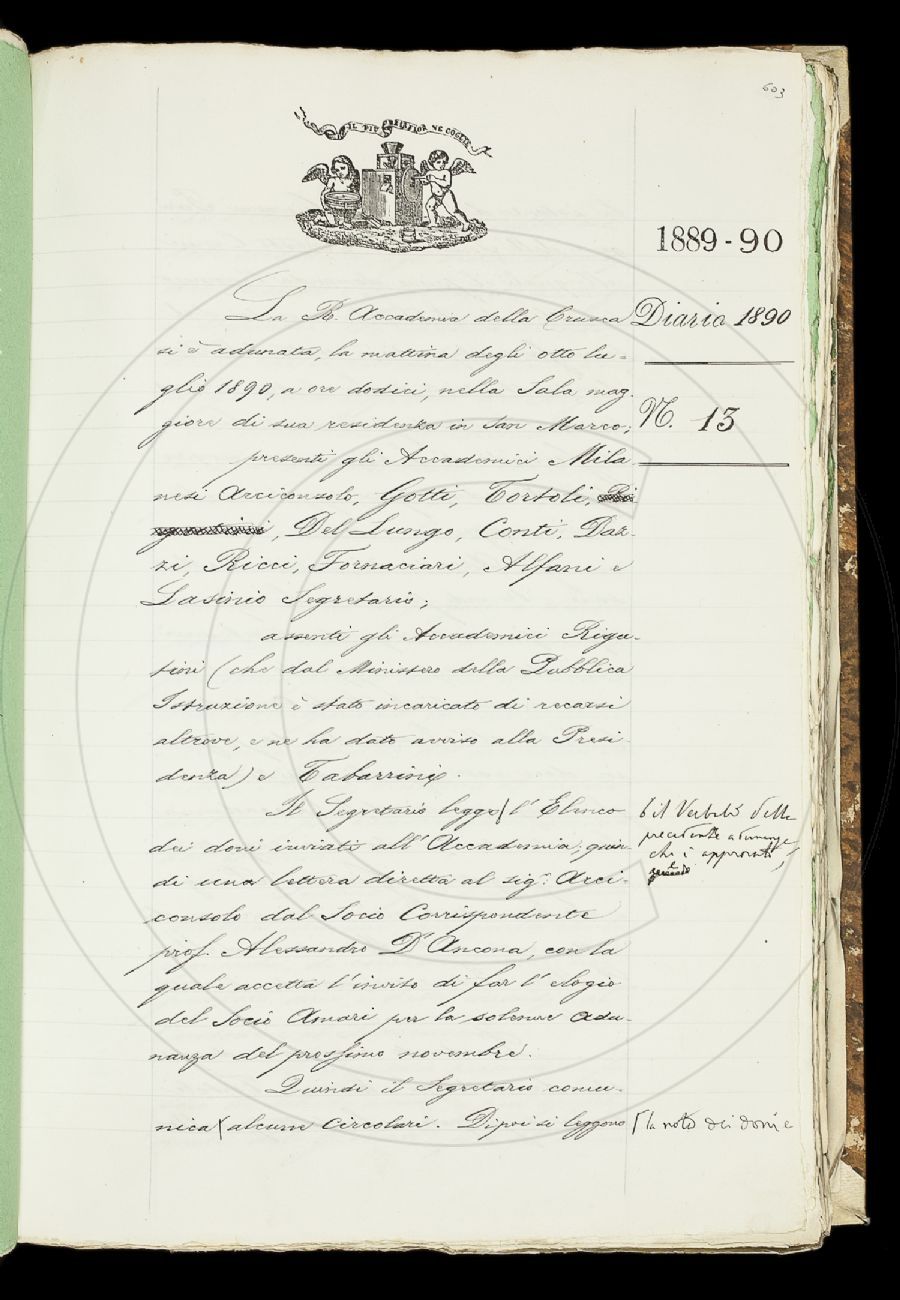 603
IL PIÙ BEL FIOR NE COGLIE
1889-90
Diario 1890
N. 13
La R. Accademia della Crusca
si è adunata, la mattina degli otto lu-
glio 1890, a ore dodici, nella Sala mag-
giore di sua residenza in San Marco;
presenti gli Accademici Mila
nesi Arciconsolo, Gotti, Tortoli,
, Del Lungo, Conti, Daz-
zi, Ricci, Fornaciari, Alfani e
Lasinio Segretario;
assenti gli Accademici Rigu-
tini (che dal Ministero della Pubblica
Istruzione è stato incaricato di recarsi
altrove, e ne ha dato avviso alla Presi-
denza) e Tabarrini.
Il Segretario legge l'Elenco
dei doni inviati all'Accademia; quin-
di una lettera diretta al sig.r Arci-
consolo dal Socio Corrispondente
prof. Alessandro D'Ancona, con la
quale accetta l'invito di far l'elogio
del Socio Amari per la solenne adu-
nanza del prossimo novembre.
Quindi il Segretario comu-
nica alcune circolari. Dipoi si leggono
il Verbale della
precedente adunanza,
che è approvato;
la nota dei doni e